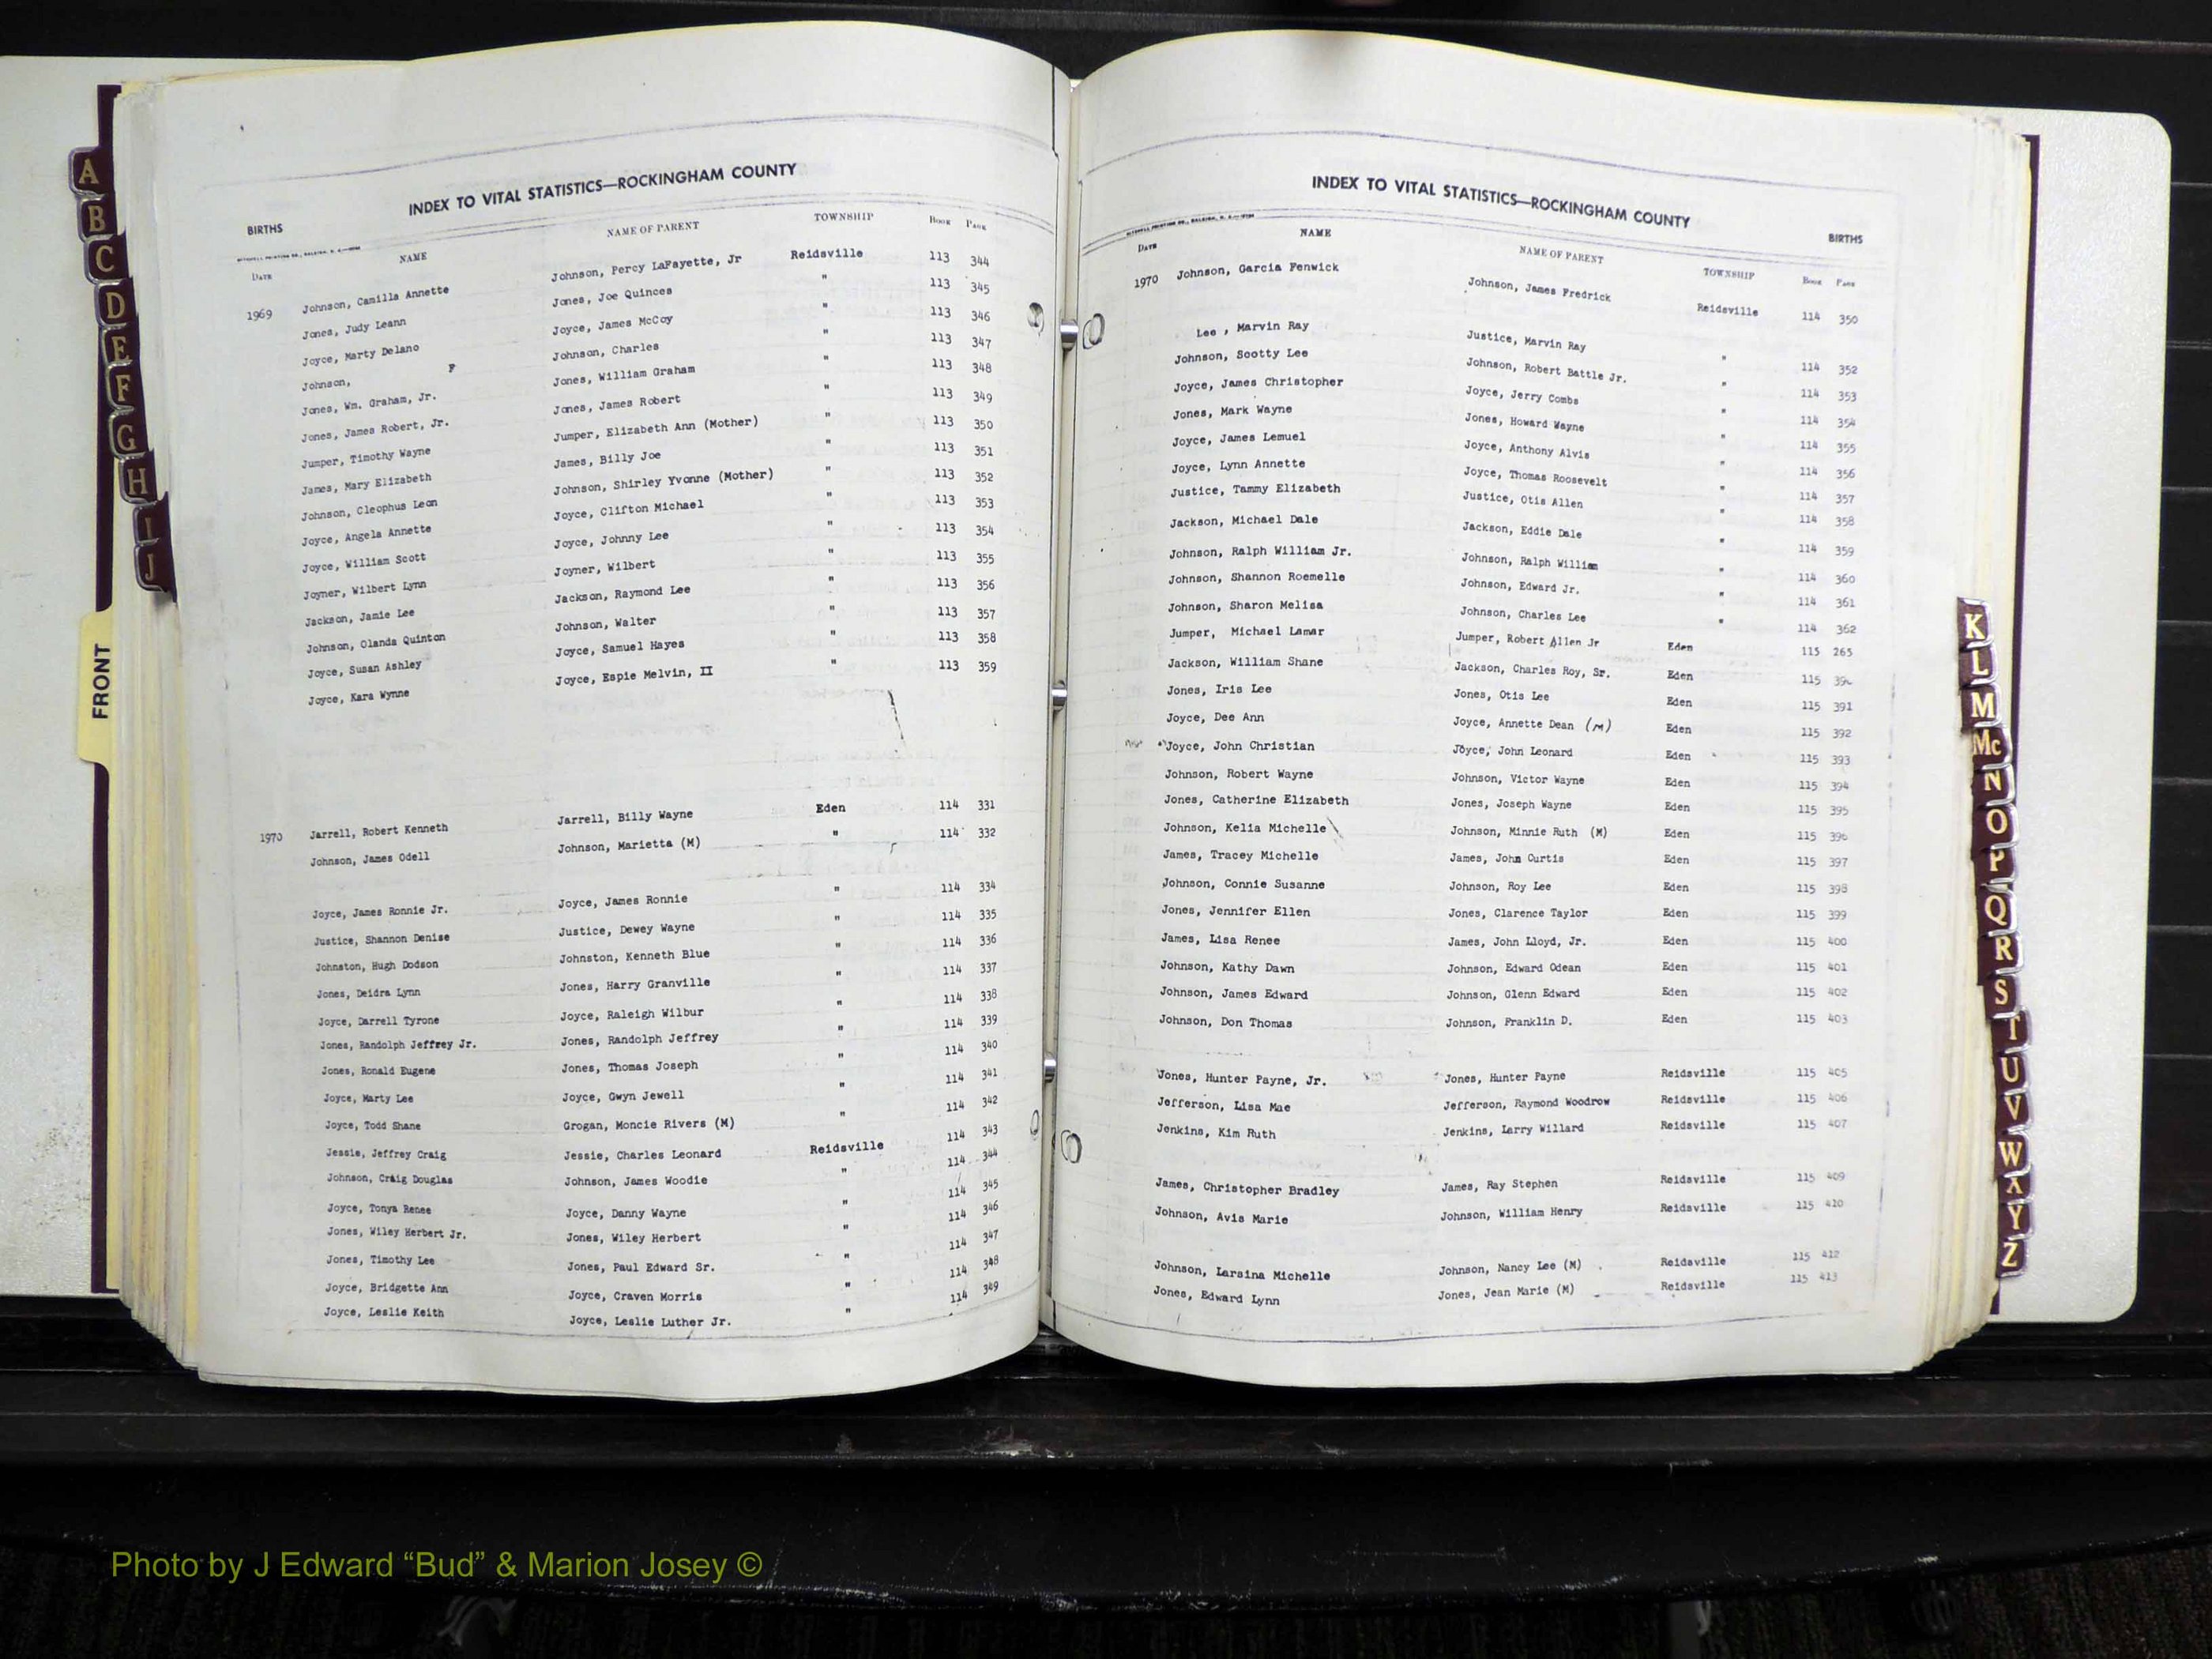 A
B
C
D
E
F
G
H
I
J
FRONT
INDEX TO VITAL STATISTICS—ROCKINGHAM COUNTY
BIRTHS
DATE NAME NAME OF PARENT TOWNSHIP BOOK PAGE
1969 Johnson, Camilla Annette Johnson, Percy LaFayette, Jr Reidsville 113 344
Jones, Judy Leann Jones, Joe Quinces " 113 345
Joyce, Marty Delano Joyce, James McCoy " 113 346
Johnson, F Johnson, Charles " 113 347
Jones, Wm. Graham, Jr. Jones, William Graham " 113 348
Jones, James Robert, Jr. Jones, James Robert " 113 349
Jumper, Timothy Wayne Jumper, Elizabeth Ann (Mother) " 113 350
James, Mary Elizabeth James, Billy Joe " 113 351
Johnson, Cleophus Leon Johnson, Shirley Yvonne (Mother) " 113 352
Joyce, Angela Annette Joyce, Clifton Michael " 113 353
Joyce, William Scott Joyce, Johnny Lee " 113 354
Joyner, Wilbert Lynn Joyner, Wilbert " 113 355
Jackson, Jamie Lee Jackson, Raymond Lee " 113 356
Johnson, Olanda Quinton Johnson, Walter " 113 357
Joyce, Susan Ashley Joyce, Samuel Hayes " 113 358
Joyce, Kara Wynne Joyce, Espie Melvin, II " 113 359
1970 Jarrell, Robert Kenneth Jarrell, Billy Wayne Eden 114 331
Johnson, James Odell Johnson, Marietta (M) " 114 332
Joyce, James Ronnie Jr. Joyce, James Ronnie " 114 334
Justice, Shannon Denise Justice, Dewey Wayne " 114 335
Johnston, Hugh Dodson Johnston, Kenneth Blue " 114 336
Jones, Deidra Lynn Jones, Harry Granville " 114 337
Joyce, Darrell Tyrone Joyce, Raleigh Wilbur " 114 338
Jones, Randolph Jeffrey Jr. Jones, Randolph Jeffrey " 114 339
Jones, Ronald Eugene Jones, Thomas Joseph " 114 340
Joyce, Marty Lee Joyce, Gwyn Jewell " 114 341
Joyce, Todd Shane Grogan, Moncie Rivers (M) " 114 342
Jessie, Jeffrey Craig Jessie, Charles Leonard Reidsville 114 343
Johnson, Craig Douglas Johnson, James Woodie " 114 344
Joyce, Tonya Renee Joyce, Danny Wayne " 114 345
Jones, Wiley Herbert Jr. Jones, Wiley Herbert " 114 346
Jones, Timothy Lee Jones, Paul Edward Sr. " 114 347
Joyce, Bridgette Ann Joyce, Craven Morris " 114 348
Joyce, Leslie Keith Joyce, Leslie Luther Jr. " 114 349
INDEX TO VITAL STATISTICS—ROCKINGHAM COUNTY
BIRTHS
DATE NAME NAME OF PARENT TOWNSHIP BOOK PAGE
1970 Johnson, Garcia Fenwick Johnson, James Fredrick Reidsville 114 350
Lee , Marvin Ray Justice, Marvin Ray " 114 352
Johnson, Scotty Lee Johnson, Robert Battle Jr. " 114 353
Joyce, James Christopher Joyce, Jerry Combs " 114 354
Jones, Mark Wayne Jones, Howard Wayne " 114 355
Joyce, James Lemuel Joyce, Anthony Alvis " 114 356
Joyce, Lynn Annette Joyce, Thomas Roosevelt " 114 357
Justice, Tammy Elizabeth Justice, Otis Allen " 114 358
Jackson, Michael Dale Jackson, Eddie Dale " 114 359
Johnson, Ralph William Jr. Johnson, Ralph William " 114 360
Johnson, Shannon Roemelle Johnson, Edward Jr. " 114 361
Johnson, Sharon Melisa Johnson, Charles Lee " 114 362
Jumper, Michael Lamar Jumper, Robert Allen Jr Eden 115 265
Jackson, William Shane Jackson, Charles Roy, Sr. Eden 115
Jones, Iris Lee Jones, Otis Lee Eden 115 391
Joyce, Dee Ann Joyce, Annette Dean (M) Eden 115 392
Joyce, John Christian Joyce, John Leonard Eden 115 393
Johnson, Robert Wayne Johnson, Victor Wayne Eden 115 394
Jones, Catherine Elizabeth Jones, Joseph Wayne Eden 115 395
Johnson, Kelia Michelle Johnson, Minnie Ruth (M) Eden 115 396
James, Tracey Michelle James, John Curtis Eden 115 397
Johnson, Connie Susanne Johnson, Roy Lee Eden 115 398
Jones, Jennifer Ellen Jones, Clarence Taylor Eden 115 399
James, Lisa Renee James, John Lloyd, Jr. Eden 115 400
Johnson, Kathy Dawn Johnson, Edward Odean Eden 115 401
Johnson, James Edward Johnson, Glenn Edward Eden 115 402
Johnson, Don Thomas Johnson, Franklin D. Eden 115 403
Jones, Hunter Payne, Jr. Jones, Hunter Payne Reidsville 115 405
Jefferson, Lisa Mae Jefferson, Raymond Woodrow Reidsville 115 406
Jenkins, Kim Ruth Jenkins, Larry Willard Reidsville 115 407
James, Christopher Bradley James, Ray Stephen Reidsville 115 409
Johnson, Avis Marie Johnson, William Henry Reidsville 115 410
Johnson, Larsina Michelle Johnson, Nancy Lee (M) Reidsville 115 412
Jones, Edward Lynn Jones, Jean Marie (M) Reidsville 115 413
K
L
M
Mc
N
O
P
Q
R
S
T
U
V
W
X
Y
Z
Photo by J Edward “Bud” & Marion Josey ©